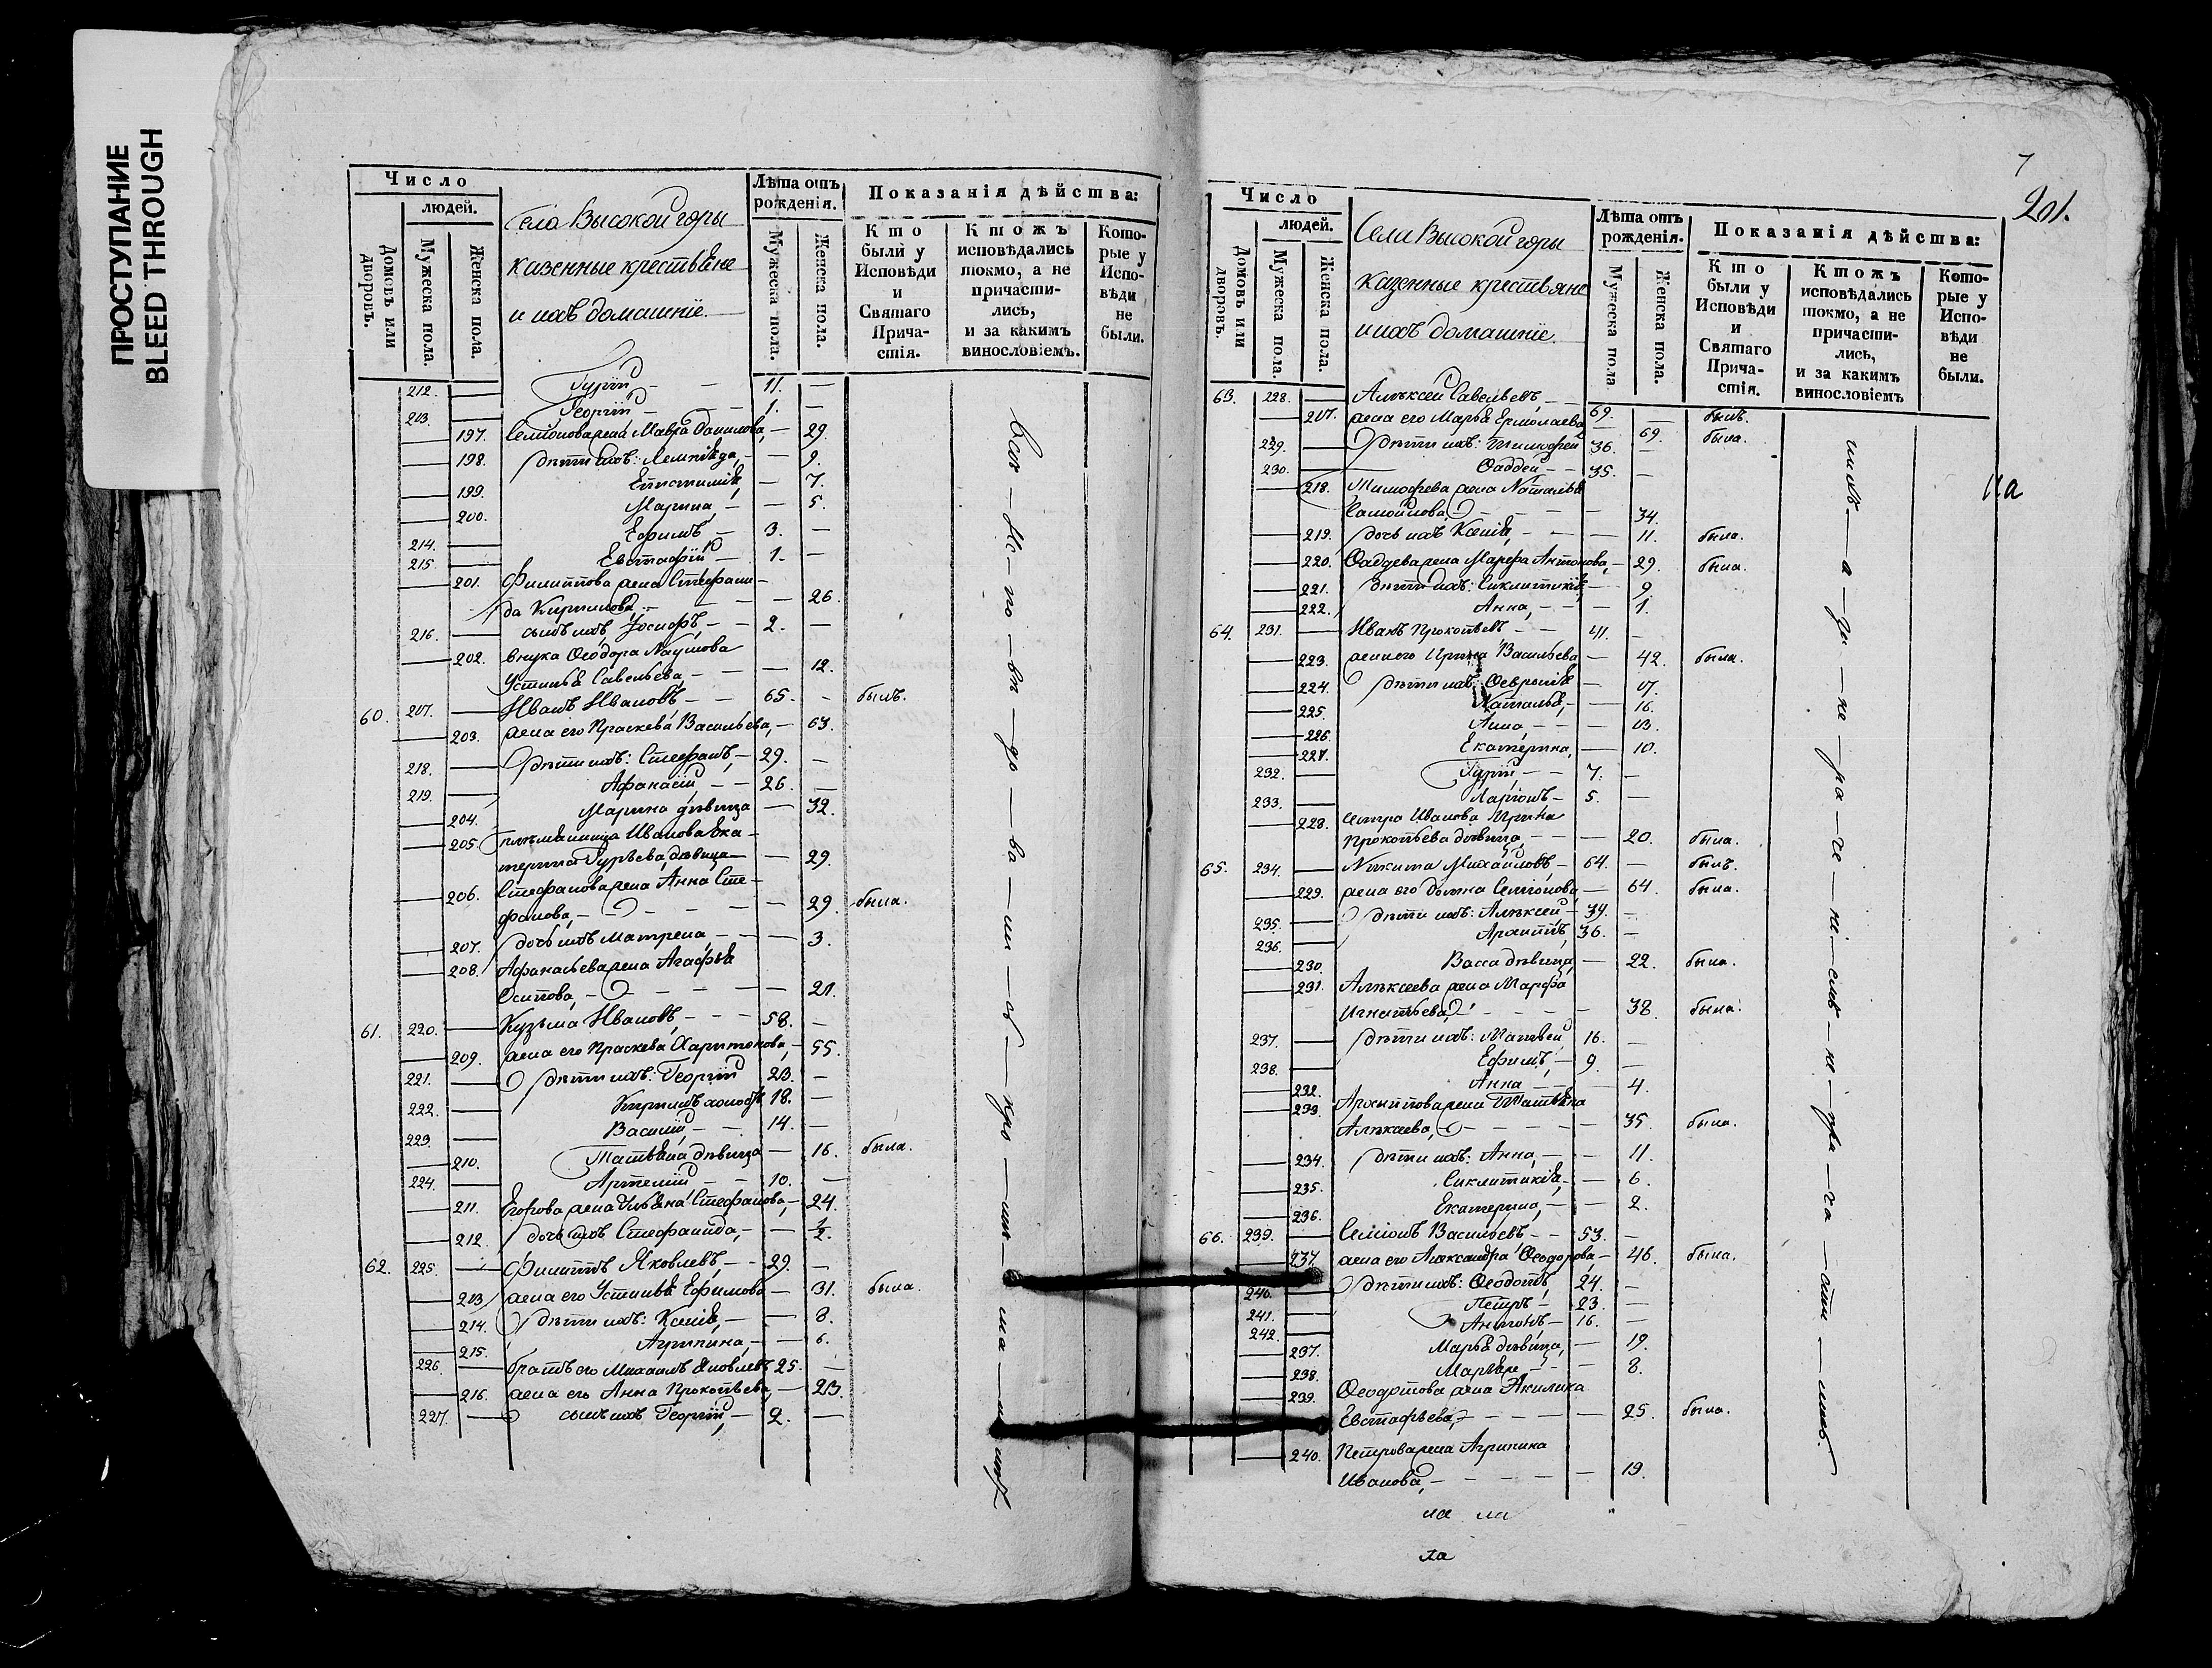 ПРОСТУПАНИЕ
BLEED THROUGH
Число
людей.
Домовъ или дворовъ.
Мужеска пола.
Женска пола.
Села Высокой горы
казенные крестьяне
и ихъ домашніе.
Лѣта отъ рожденія.
Мужеска пола.
Женска пола.
Показанія дѣйства:
Кто были у Исповѣди и Святаго Причастія.
Ктожъ исповѣдались токмо, а не причастились, и за какимъ винословіемъ.
Которые у Исповѣди не были.
212. — Гурій — 11. —
213. — Георгій — 1. —
— 197. Семіонова жена Мавра Данилова, — 29.
— 198. дѣти ихъ: — 9.
— 199. Епистимія, — 7.
— 200. Марина, — 5.
214. — Ефимъ — 3. —
215. — Евстафій — 1. —
— 201. Филиппова жена Стефани-
да Кирилова, — 26.
216. — сынъ ихъ Іосифъ, — 2. —
— 202. внука Ѳеодора Наумова
Устинья Савельева, — 12.
60. 217. — Иванъ Ивановъ — 65. — былъ.
— 203. жена его Праскева Васильева, — 63.
218. — дѣти ихъ: Стефанъ, — 29. —
219. — Афанасій, — 26. —
— 204. Марина дѣвица — 32.
— 205. племянница Иванова Ека-
терина Гурьева, дѣвица — 29.
— 206. Стефанова жена Анна Сте-
фанова, — 29. была.
— 207. дочь ихъ Матрена, — 3.
— 208. Афанасьева жена Агафья
Осипова, — 21.
61. 220. — Кузьма Ивановъ, — 58. —
— 209. жена его Праскева Харитонова, — 55.
221. — дѣти ихъ: Георгій 23. —
222. — Кирилъ холостъ 18. —
223. — Василій, — 14. —
— 210. Татьяна дѣвица — 16. была.
224. — Артемій — 10. —
— 211. Егорова жена Ульяна Стефанова, — 24.
— 212. дочь ихъ Стефанида, — ½.
62. 225. — Филиппъ Яковлевъ — 29. —
— 213. жена его Устинья Ефимова — 31. была.
— 214. дѣти ихъ: Ксенія, — 8.
— 215. Агрипина, — 6.
226. — братъ его Михаилъ Яковлевъ 25. —
— 216. жена его Анна Прокопьева, — 23.
227. — сынъ ихъ Георгій, — 2. —
7
201.
Число
людей.
Домовъ или дворовъ.
Мужеска пола.
Женска пола.
Села Высокой горы
казенные крестьяне
и ихъ домашніе.
Лѣта отъ рожденія.
Мужеска пола
Женска пола.
Показанія дѣйства:
Кто были у Исповѣди и Святаго Причастія.
Ктожъ исповѣдались токмо, а не причастились, и за какимъ винословіемъ
Которые у Исповѣди не были.
63. 228. — Алексей Савельевъ — 69. — былъ.
— 217. жена его Марья Ермолаева — 69. была.
229. — дѣти ихъ: Тимофей 36. —
230. — Фаддей — 35. —
— 218. Тимофева жена Наталья
Самойлова, — 34.
— 219. дочь ихъ Ксенія, — 11. была.
— 220. Фаддева жена Марфа Антонова, — 29. была.
— 221. дѣти ихъ: Сиклитикія — 9.
— 222. Анна, — 1.
64. 231. — Иванъ Прокопьевъ — 41. —
— 223. жена его Ирина Васильева — 42. была.
— 224. дѣти ихъ: Февронія — 17.
— 225. Наталья, — 16.
— 226. Анна, — 13.
— 227. Екатерина, — 10.
232. — Гурій, — 7. —
233. — Ларіонъ — 5. —
— 228. сестра Иванова Ирина
Прокопьева дѣвица, — 20. была.
65. 234. — Никита Михайловъ — 64. — былъ.
— 229. жена его Домна Семіонова, — 64. была.
235. — дѣти ихъ: Алексей — 39. —
236. — Архиппъ, 36. —
— 230. Васса дѣвица — 22. была.
— 231. Алексеева жена Марфа
Игнатьева, — 38. была.
237. — дѣти ихъ: Матвей 16. —
238. — Ефимъ, — 9. —
— 232. Анна — 4.
— 233. Архиппова жена Татьяна
Алексеева, — 35. была.
— 234. дѣти ихъ: Анна, — 11.
— 235. Сиклитикія, — 6.
— 236. Екатерина, — 2.
66. 239. — Семіонъ Васильевъ — 53. —
— 237. жена его Александра Ѳеодорова, — 46. была.
240. — дѣти ихъ: Ѳеодотъ, 24. —
241. — Петръ — 23. —
242. — Антонъ — 16. —
— 237. Марья дѣвица, — 19.
— 238. — 8.
— 239. Ѳеодотова жена Акилина
Евстафьева, — 25. была.
— 240. Петрова жена Агрипина
Иванова, — 19.
на